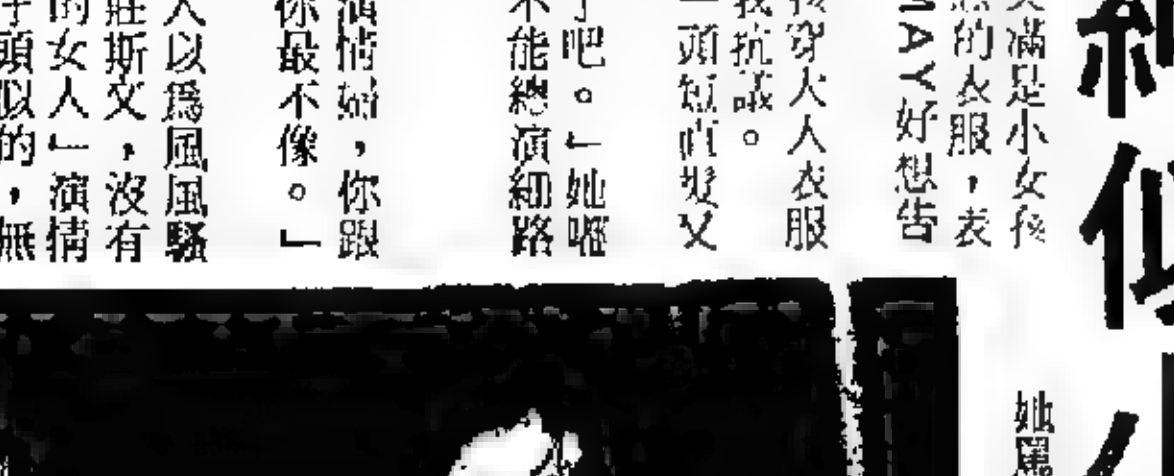 似
滿是小女孩
的衣服，表
MAY好想告
穿大人衣服
抗議。
一頭短直髮又
吧。」她
不能總演細路
演情婦，你跟
你最不像。」
人以爲風風騷
莊斯文，沒有
的女人」演情
頭似的，無
她